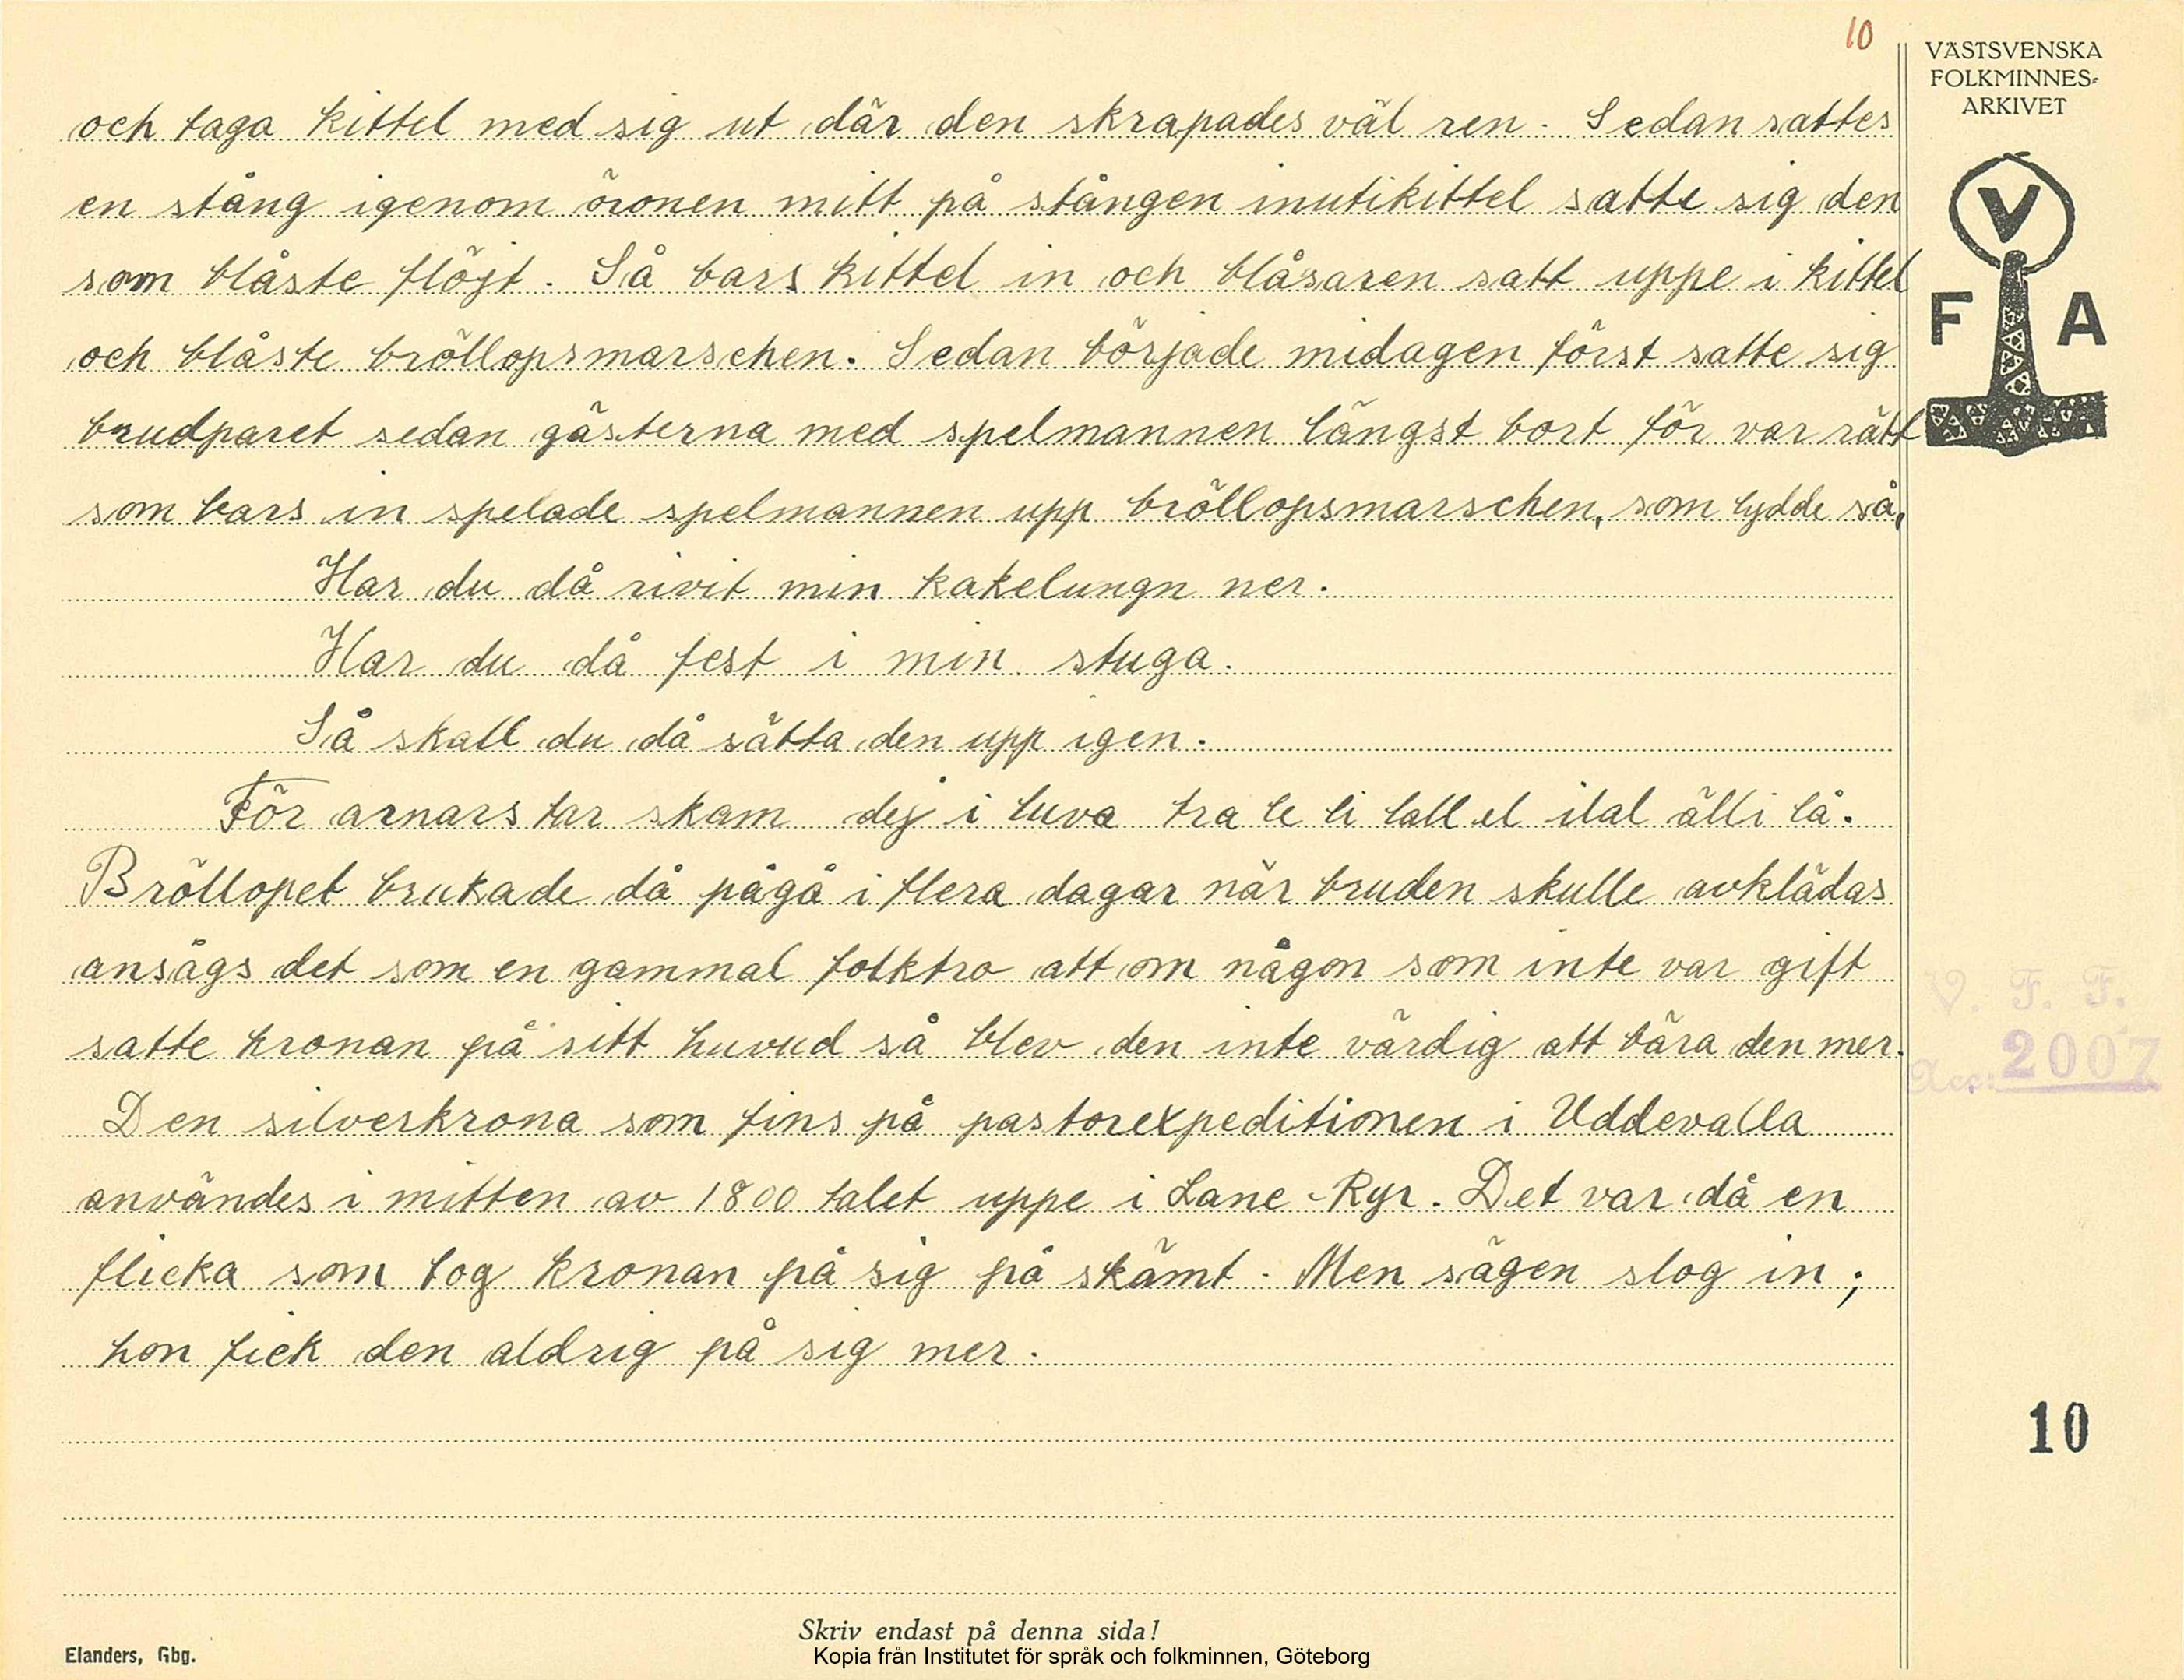 10
VÄSTSVENSKA
FOLKMINNES-
ARKIVET
V
F A
och taga kittel med sig ut där den skrapades väl ren. Sedan sattes
en stång igenom öronen mitt på stången inutikittel satte sig den
som blåste flöjt. Så bars kittel in och blåsaren satt uppe i kittel
och blåste bröllopsmarschen. Sedan började midagen först satte sig
brudparet sedan gästerna med spelmannen längst bort för var rätt
som bars in spelade spelmannen upp bröllopsmarschen, som lydde så,
Har du då rivit min kakelungn ner.
Har du då fest i min stuga.
Så skall du då sätta den upp igen.
För arnars tar skam dej i luva tra le li lall el ilal älli lå.
Bröllopet brukade då pågå i flera dagar när bruden skulle avklädas
ansågs det som en gammal folktro att om någon som inte var gift
satte kronan på sitt huvud så blev den inte värdig att bära den mer.
Den silverkrona som fins på pastorexpeditionen i Uddevalla
användes i mitten av 1800 talet uppe i Lane-Ryr. Det var då en
flicka som tog kronan på sig på skämt. Men sägen slog in;
hon fick den aldrig på sig mer.
V. F. F.
Acc: 2007
10
Skriv endast på denna sida!
Elanders, Gbg.
Kopia från Institutet för språk och folkminnen, Göteborg